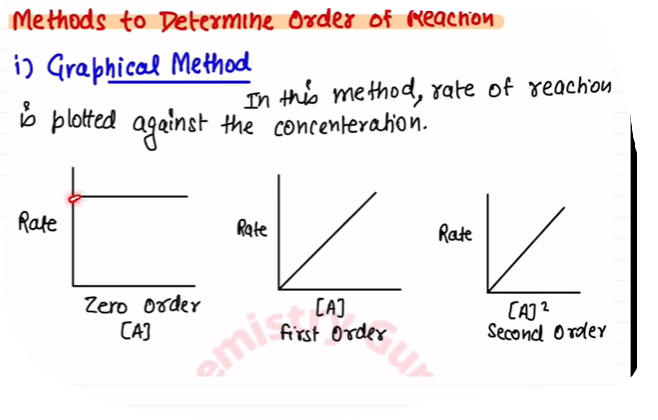 Methods to Determine Order of Reaction
i) Graphical Method
In this method, rate of reaction
is plotted against the concenteration.
Rate Rate Rate
Zero Order [A] [A]²
[A] First Order Second Order
emistry Gur